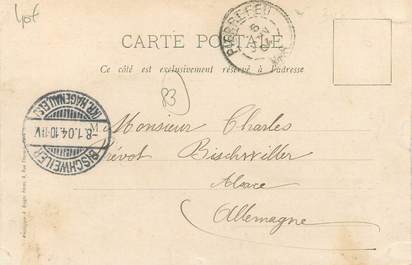 CARTE POSTALE
Ce côté est exclusivement réservé à l'adresse
PIERREFEU
83
BISCHWEILER
(KR. HAGENAU ELS.)
-8.1.04.10-11V.
Monsieur Charles
Prévot Bischwiller
Alsace
Allemagne